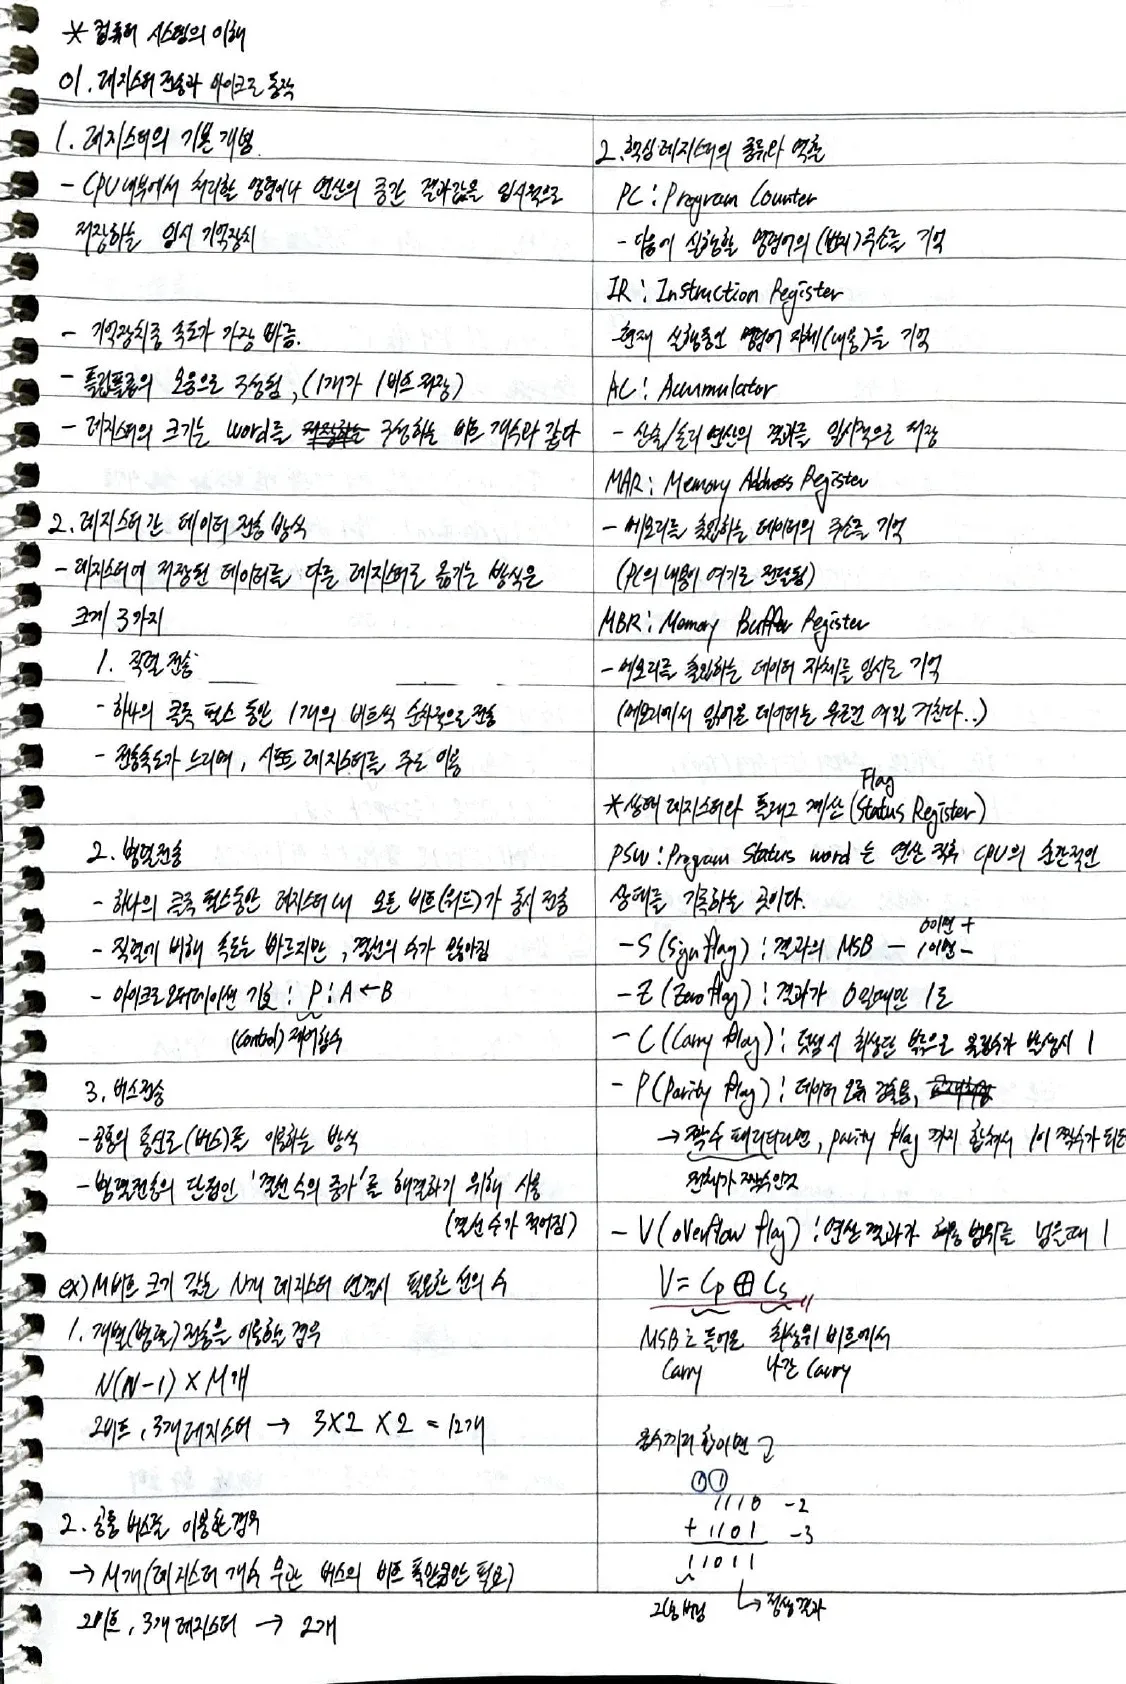 * 컴퓨터 시스템의 이해
01. 레지스터 전송과 마이크로 동작
1. 레지스터의 기본 개념.
- CPU 내부에서 처리할 명령이나 연산의 중간 결과값을 일시적으로
저장하는 임시 기억장치
- 기억장치중 속도가 가장 빠름.
- 플립플롭의 모음으로 구성됨, (1개가 1비트 저장)
- 레지스터의 크기는 word를 구성하는 비트 개수와 같다
2. 레지스터 간 데이터 전송 방식
- 레지스터에 저장된 데이터를 다른 레지스터로 옮기는 방식은
크게 3가지
1. 직렬 전송
- 하나의 클록 펄스 동안 1개의 비트씩 순차적으로 전송
- 전송속도가 느리며, 시프트 레지스터를 주로 이용
2. 병렬전송
- 하나의 클록 펄스동안 레지스터 내 모든 비트(워드)가 동시 전송
- 직렬에 비해 속도는 빠르지만, 결선의 수가 많아짐
- 마이크로 오퍼레이션 기호 : P : A ← B
(control) 제어함수
3. 버스전송
- 공통의 통신로(버스)를 이용하는 방식
- 병렬전송의 단점인 '결선 수의 증가'를 해결하기 위해 사용
(결선 수가 적어짐)
ex) M비트 크기 갖는 N개 레지스터 연결시 필요한 선의 수
1. 개별(병렬) 전송을 이용할 경우
N(N-1) × M개
2비트, 3개 레지스터 → 3×2 ×2 = 12개
2. 공통 버스를 이용한 경우
→ M개 (레지스터 개수 무관 버스의 비트 폭만큼만 필요)
2비트, 3개 레지스터 → 2개
2. 핵심 레지스터의 종류와 역할
PC : Program Counter
- 다음에 실행할 명령어의 (번지) 주소를 기억
IR : Instruction Register
- 현재 실행중인 명령어 자체(내용)을 기억
AC : Acummulator
- 산술/논리 연산의 결과를 일시적으로 저장
MAR : Memory Address Register
- 메모리를 출입하는 데이터의 주소를 기억
(PC의 내용이 여기로 전달됨)
MBR : Memory Buffer Register
- 메모리를 출입하는 데이터 자체를 임시로 기억
(메모리에서 읽어온 데이터는 무조건 여길 거친다..)
Flag
* 상태 레지스터와 플래그 계산 (Status Register)
PSW : Program Status word 는 연산 직후 CPU의 순간적인
상태를 기록하는 곳이다.
0이면 +
- S (Sign flag) : 결과의 MSB - 1이면 -
- Z (Zero flag) : 결과가 0일때만 1로
- C (Carry flag) : 덧셈 시 최상단 밖으로 올림수가 발생시 1
- P (Parity flag) : 데이터 오류 검출용,
→ 짝수 패리티라면, parity flag 까지 합쳐서 1이 짝수가 되도
전체가 짝수인것
- V (oVerflow flag) : 연산 결과가 허용 범위를 넘을때 1
V = Cp ⊕ Cs
MSB로 들어온 최상위 비트에서
Carry 나간 Carry
음수끼리 합이면
① ①
1110 -2
+ 1101 -3
11011
그냥 버림 → 정상결과